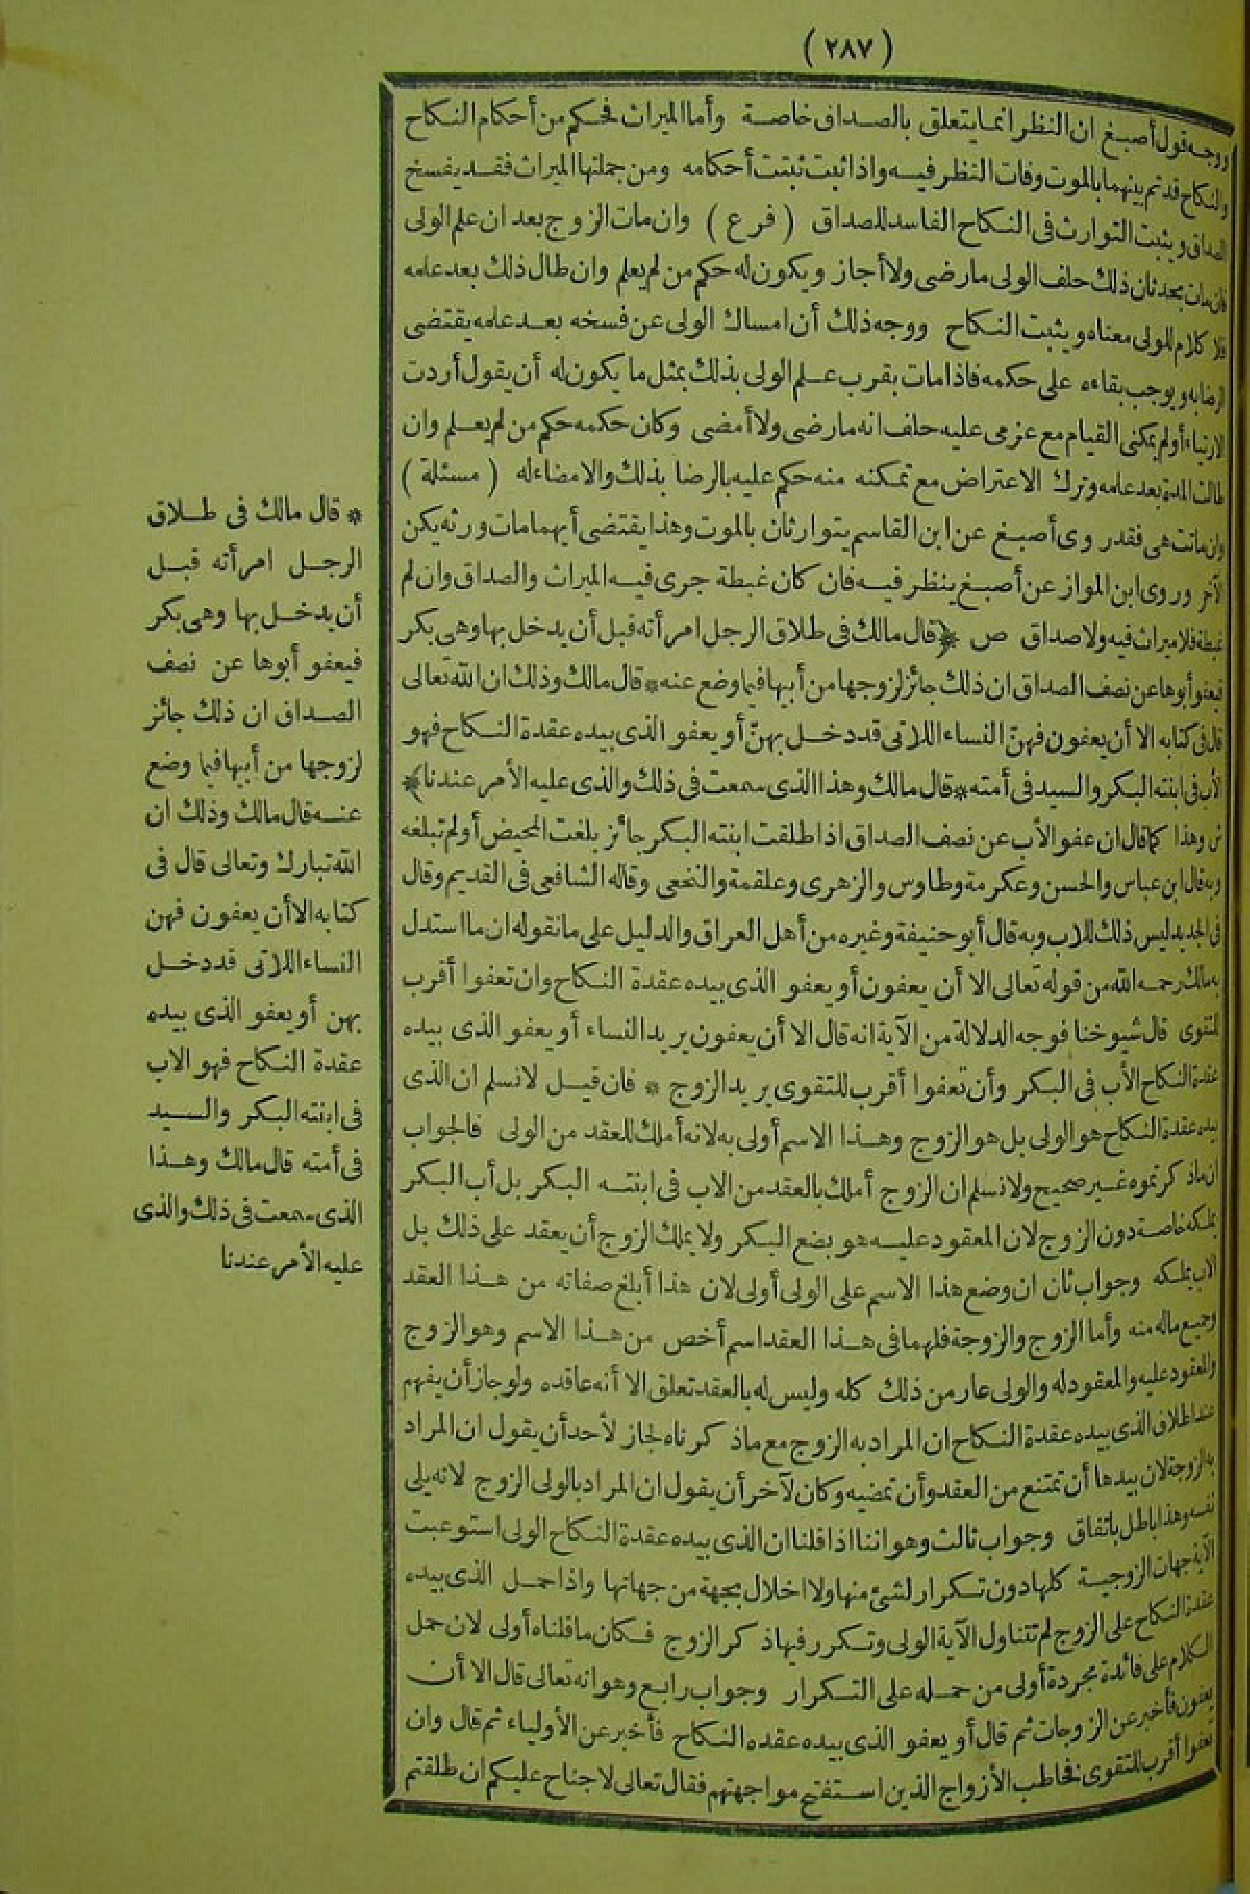 (٢٨٧)
ووجه قول أصبغ ان النظر انما يتعلق بالصداق خاصة وأما الميراث فحكم من أحكام النكاح
والنكاح قد تم بينهما بالموت وفات النظر فيه واذا ثبت ثبتت أحكامه ومن جملتها الميراث فقد يفسخ
الصداق ويثبت التوارث فى النكاح الفاسد للصداق (فرع) وان مات الزوج بعد ان علم الولى
فان مات بحدثان ذلك حلف الولى مارضى ولا أجاز ويكون له حكم من لم يعلم وان طال ذلك بعد علمه
فلا كلام للولى معناه ويثبت النكاح ووجه ذلك أن امساك الولى عن فسخه بعد علمه يقتضى
الرضا به ويوجب بقاءه على حكمه فاذا مات بقرب علم الولى بذلك بمثل ما يكون له أن يقول أردت
الارتياء أولم يمكنى القيام مع عزمى عليه حلف انه مارضى ولا أمضى وكان حكمه حكم من لم يعلم وان
طالت المدة بعد علمه وترك الاعتراض مع تمكنه منه حكم عليه بالرضا بذلك والامضاء له (مسئلة)
وان ماتت هى فقد روى أصبغ عن ابن القاسم يتوارثان بالموت وهذا يقتضى أيهما مات ورثه يكن
الآخر وروى ابن المواز عن أصبغ ينظر فيه فان كان غبطة جرى فيه الميراث والصداق وان لم
غبطة فلا ميراث فيه ولا صداق ص ﴿قال مالك فى طلاق الرجل امرأته قبل أن يدخل بها وهى بكر
فيعفو أبوها عن نصف الصداق ان ذلك جائز لزوجها من أبيها فيما وضع عنه * قال مالك وذلك ان الله تعالى
قال فى كتابه الا أن يعفون فهنّ النساء اللاتى قد دخل بهنّ أو يعفو الذى بيده عقدة النكاح فهو
الأب فى ابنته البكر والسيد فى أمته * قال مالك وهذا الذى سمعت فى ذلك والذى عليه الأمر عندنا﴾
ش وهذا كما قال ان عفو الأب عن نصف الصداق اذا طلقت ابنته البكر جائز بلغت المحيض أولم تبلغه
وبه قال ابن عباس والحسن وعكرمة وطاوس والزهرى وعلقمة والنخعى وقاله الشافعى فى القديم وقال
فى الجديد ليس ذلك للاب وبه قال أبو حنيفة وغيره من أهل العراق والدليل على ما نقوله ان ما استدل
به مالك رحمه الله من قوله تعالى الا أن يعفون أو يعفو الذى بيده عقدة النكاح وان تعفوا أقرب
للتقوى قال شيوخنا فوجه الدلالة من الآية انه قال الا أن يعفون يريد النساء أو يعفو الذى بيده
عقدة النكاح الأب فى البكر وأن تعفوا أقرب للتقوى يريد الزوج * فان قيل لا نسلم ان الذى
بيده عقدة النكاح هو الولى بل هو الزوج وهذا الاسم أولى به لانه أملك للعقد من الولى فالجواب
ان ماذكرتموه غير صحيح ولا نسلم ان الزوج أملك بالعقد من الاب فى ابنته البكر بل أب البكر
يملكه خاصة دون الزوج لان المعقود عليه هو بضع البكر ولا يملك الزوج أن يعقد على ذلك بل
الاب يملكه وجواب ثان ان وضع هذا الاسم على الولى أولى لان هذا أبلغ صفاته من هذا العقد
وجميع ماله منه وأما الزوج والزوجة فلهما فى هذا العقد اسم أخص من هذا الاسم وهو الزوج
والمعقود عليه والمعقود له والولى عار من ذلك كله وليس له بالعقد تعلق الا أنه عاقده ولو جاز أن يفهم
عند اطلاق الذى بيده عقدة النكاح ان المراد به الزوج مع ماذكرناه لجاز لأحد أن يقول ان المراد
به الزوجة لان بيدها أن تمتنع من العقد وأن تمضيه وكان لآخر أن يقول ان المراد بالولى الزوج لانه يلى
نفسه وهذا باطل باتفاق وجواب ثالث وهو اننا اذا قلنا ان الذى بيده عقدة النكاح الولى استوعبت
الآية جهات الزوجية كلها دون تكرار لشئ منها ولا اخلال بجهة من جهاتها واذا حمل الذى بيده
عقدة النكاح على الزوج لم تتناول الآية الولى وتكرر فيها ذكر الزوج فكان ما قلناه أولى لان حمل
الكلام على فائدة مجردة أولى من حمله على التكرار وجواب رابع وهو انه تعالى قال الا أن
يعفون فأخبر عن الزوجات ثم قال أو يعفو الذى بيده عقدة النكاح فأخبر عن الأولياء ثم قال وان
تعفوا أقرب للتقوى فخاطب الأزواج الذين استفتح مواجهتهم فقال تعالى لا جناح عليكم ان طلقتم
* قال مالك فى طلاق
الرجل امرأته قبل
أن يدخل بها وهى بكر
فيعفو أبوها عن نصف
الصداق ان ذلك جائز
لزوجها من أبيها فيما وضع
عنه قال مالك وذلك ان
الله تبارك وتعالى قال فى
كتابه الا أن يعفون فهن
النساء اللاتى قد دخل
بهن أو يعفو الذى بيده
عقدة النكاح فهو الاب
فى ابنته البكر والسيد
فى أمته قال مالك وهذا
الذى سمعت فى ذلك والذى
عليه الأمر عندنا